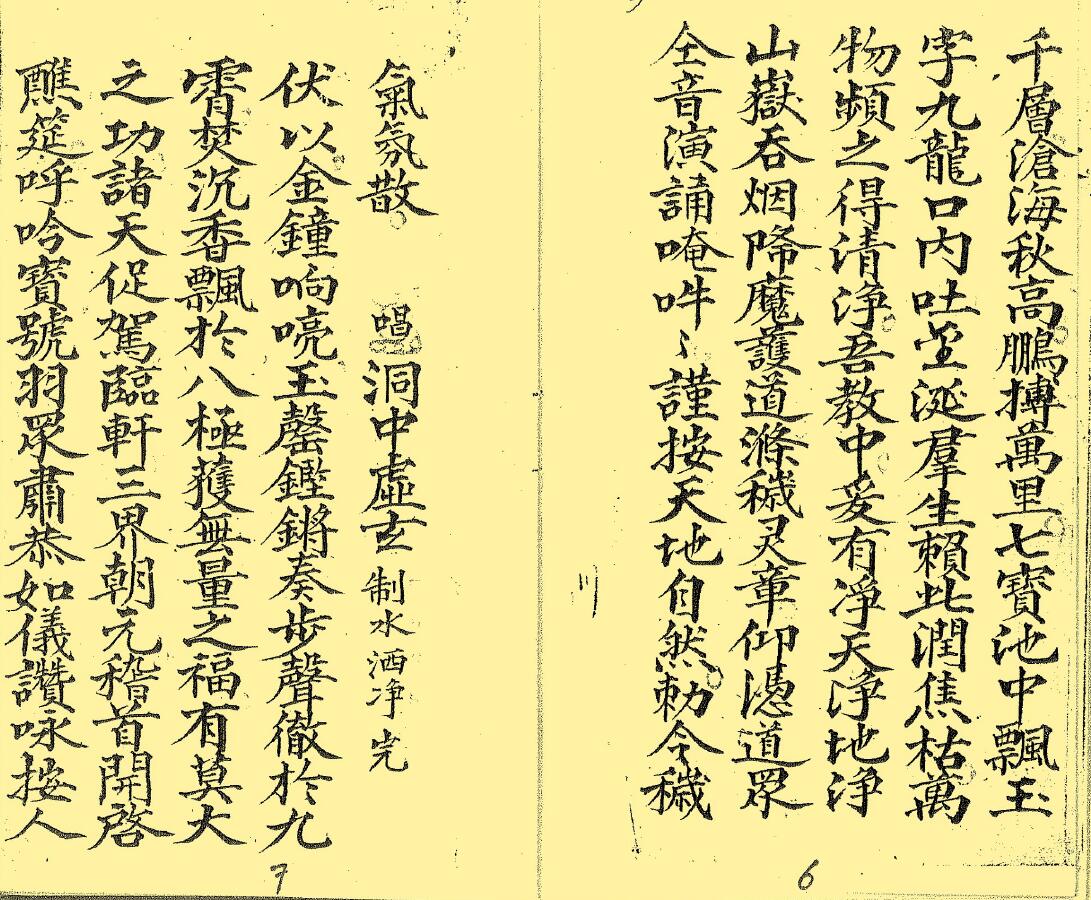 千層滄海秋高鵬摶萬里七寳池中飄玉
字九龍口內吐金涎羣生賴此潤焦枯萬
物頻之得清淨吾教中爰有凈天淨地淨
山嶽吞烟降魔護道滌穢灵章仰憑道眾
仝音演誦唵吽〻謹按天地自然勑令穢
6
氣氛散
唱洞中虛玄 制水洒净完
伏以金鐘响喨玉磬鏗鏘奏步聲徹於九
霄焚沉香飄於八極獲無量之福有莫大
之功諸天促駕臨軒三界朝元稽首開啓
醮筵呼吟寳號羽眾肅恭如儀讚咏按人
7